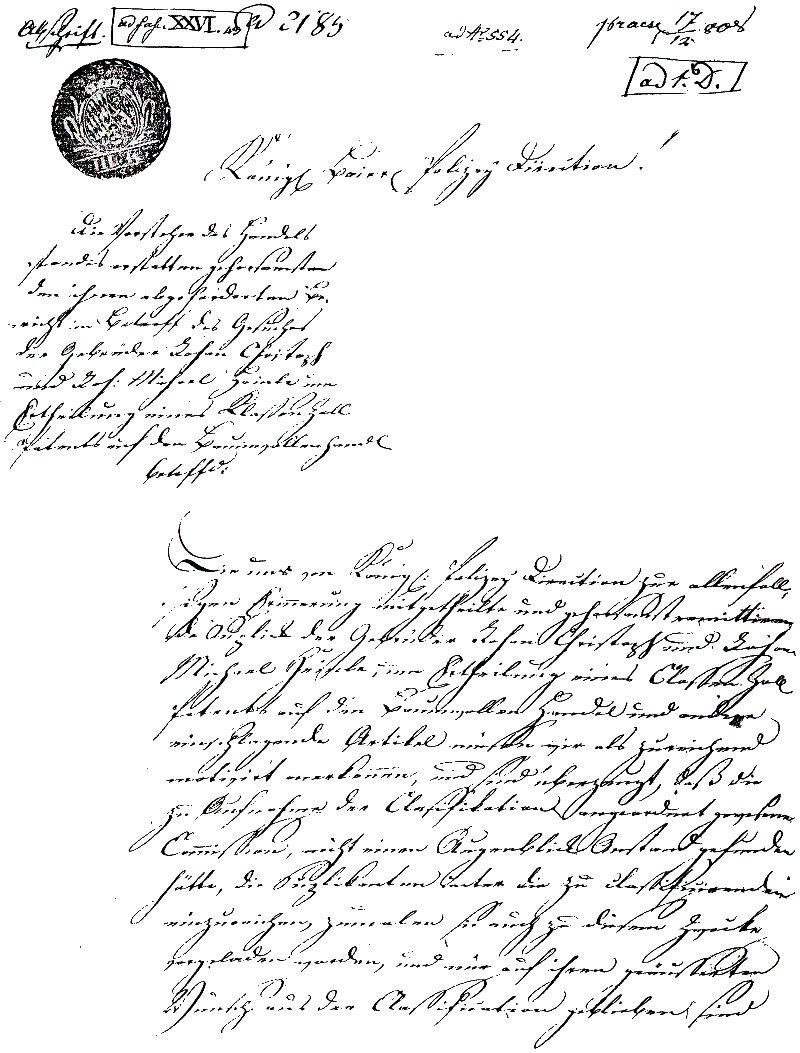 Abschrift. ad fasc. XXVI. 43 2185
ad № 554.
praes 17/12 808
ad 1. D.
III K
Königl Baier Polizey Direction!
Die Vorsteher des Handels
standes erstatten gehorsamsten
den ihnen abgeforderten Be-
richt im Betreff des Gesuches
der Gebrüder Johan Christoph
und Joh: Michael um
Ertheilung eines Klassen Zoll
Patents auf den Baumwollenhandel
betreffd:
Die uns von Königl: Polizey Direction zur allenfall-
sigen Erinnerung mitgetheilte und gehorsamst remittiren
de Supplik der Gebrüder Johan Christoph und Johan
Michael um Ertheilung eines Classen Zoll
Patents auf den Baumwollen Handel und andere
einschlagende Artikel müssen wir als zureichend
motivirt anerkennen, und sind überzeugt, daß die
zu Aufnahme der Classifikation angeordnet gewesene
Commission, nicht einen Augenblick Anstand gefunden
hätte, die Supplikanten unter die zu classifizirenden
einzureihen, zumalen sie auch zu diesem Zwecke
vorgeladen worden, und nur auf ihren geäusserten
Wunsch aus der Classification geblieben sind